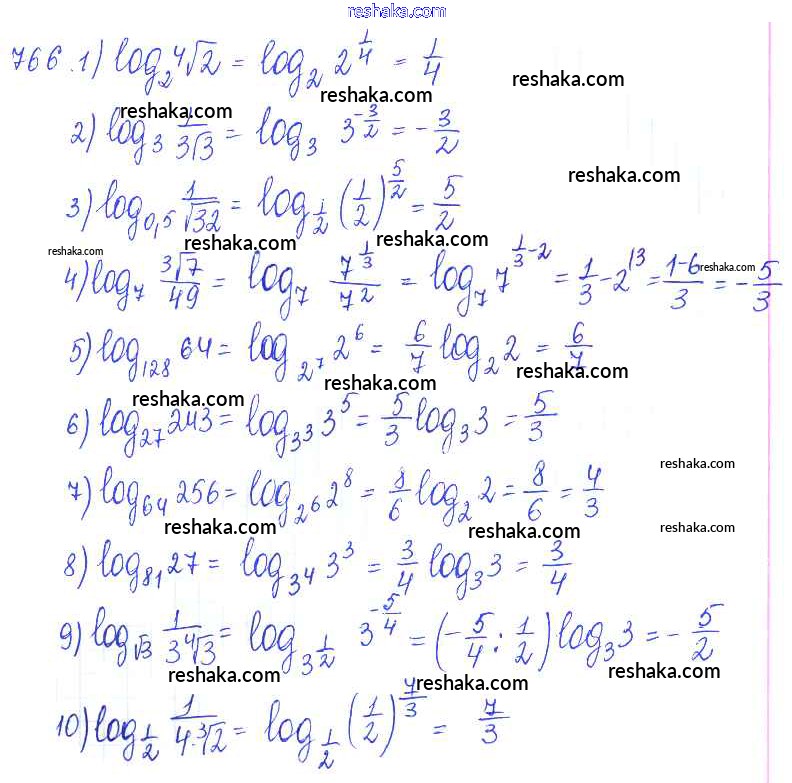 reshaka.com
766. 1) log₂ ⁴√2 = log₂ 2^(1/4) = 1/4
reshaka.com
reshaka.com
reshaka.com
2) log₃ 1/(3√3) = log₃ 3^(-3/2) = -3/2
reshaka.com
3) log₀,₅ 1/√32 = log_(1/2) (1/2)^(5/2) = 5/2
reshaka.com
reshaka.com
reshaka.com
4) log₇ ³√7/49 = log₇ 7^(1/3)/7² = log₇ 7^(1/3-2) = 1/3 - 2^(\3) = (1-6)/3 = -5/3
reshaka.com
5) log₁₂₈ 64 = log_(2⁷) 2⁶ = 6/7 log₂ 2 = 6/7
reshaka.com
reshaka.com
reshaka.com
6) log₂₇ 243 = log_(3³) 3⁵ = 5/3 log₃ 3 = 5/3
reshaka.com
reshaka.com
7) log₆₄ 256 = log_(2⁶) 2⁸ = 8/6 log₂ 2 = 8/6 = 4/3
reshaka.com
reshaka.com
reshaka.com
8) log₈₁ 27 = log_(3⁴) 3³ = 3/4 log₃ 3 = 3/4
reshaka.com
reshaka.com
9) log_(√3) 1/(3⁴√3) = log_(3^(1/2)) 3^(-5/4) = (-5/4 : 1/2) log₃ 3 = -5/2
reshaka.com
reshaka.com
10) log_(1/2) 1/(4·³√2) = log_(1/2) (1/2)^(7/3) = 7/3
reshaka.com